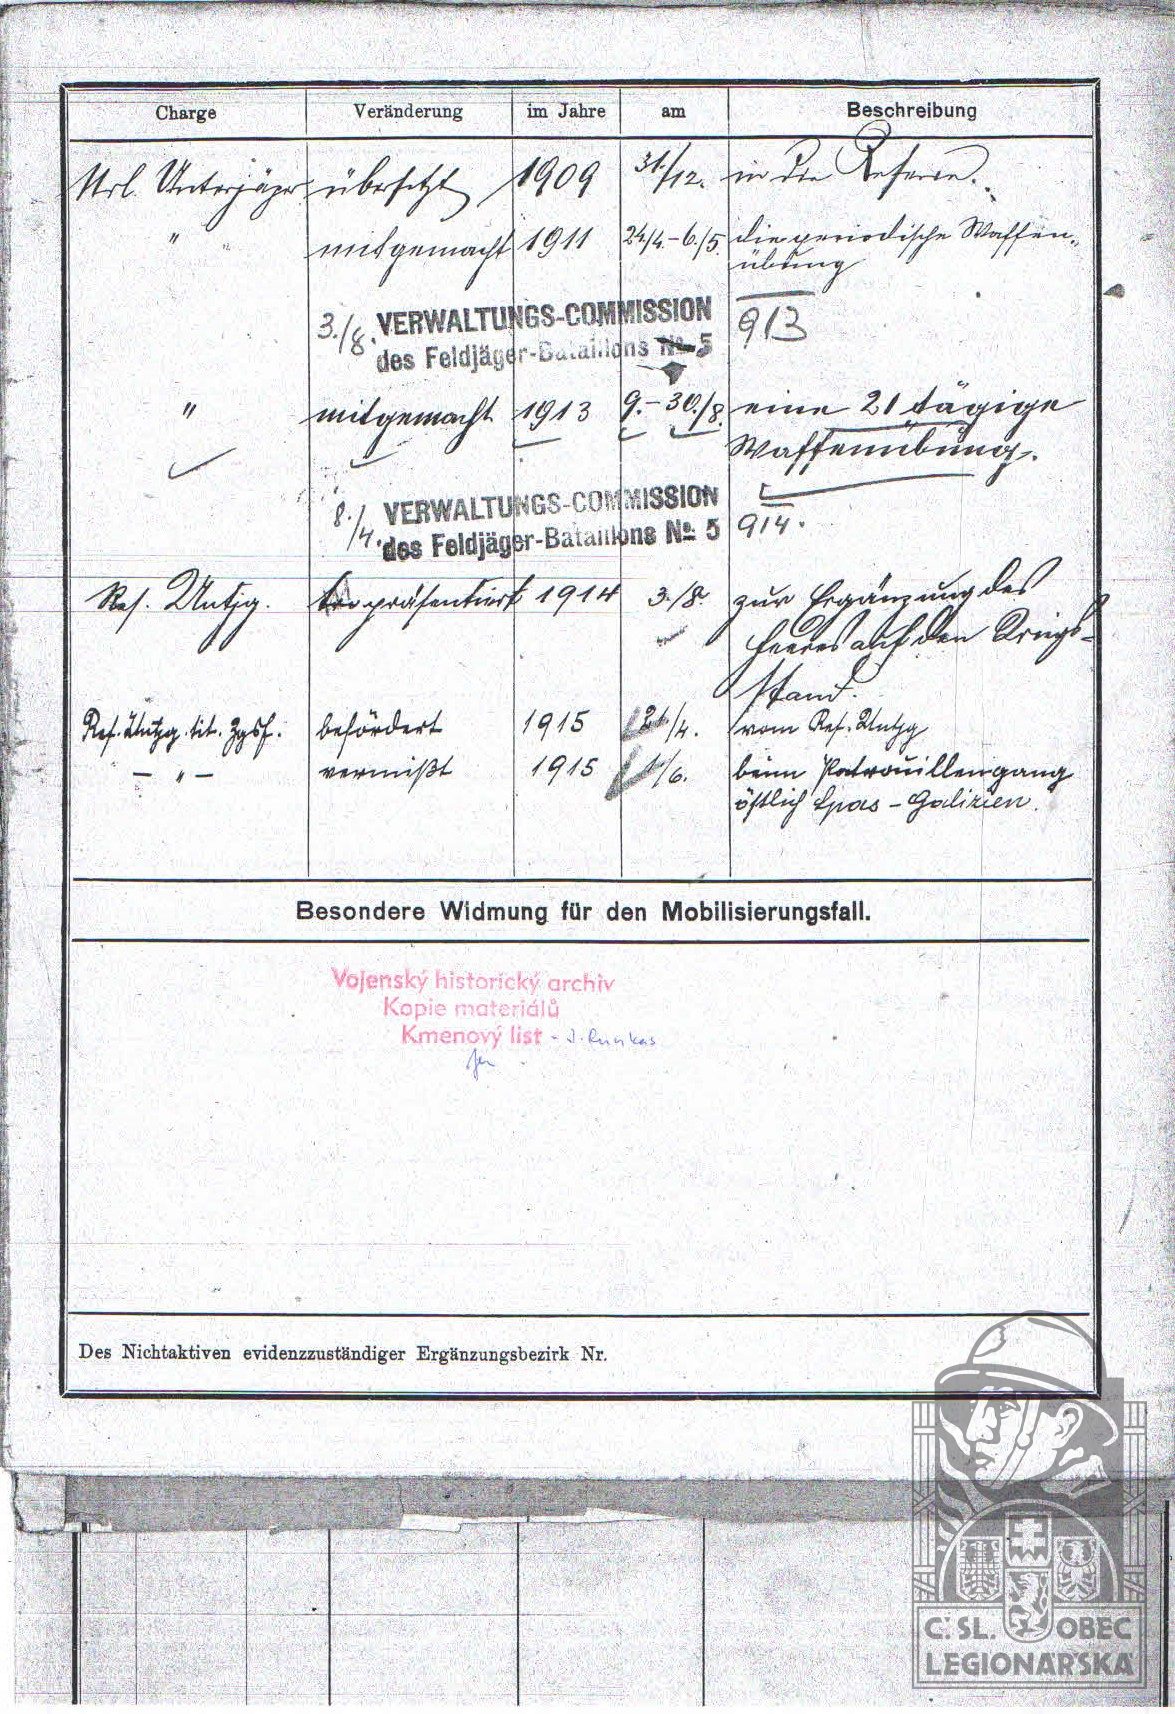 Charge Veränderung im Jahre am Beschreibung
Url. Unterjäger übersetzt 1909 31./12. in die Reserve.
" " mitgemacht 1911 24/4.-6./5. die periodische Waffen-
übung
3./8. VERWALTUNGS-COMMISSION 913
des Feldjäger-Bataillons No 5
" mitgemacht 1913 9.-30./8. eine 21 tägige
Waffenübung.
8./4. VERWALTUNGS-COMMISSION 914.
des Feldjäger-Bataillons No 5
Res. Untjg. präsentiert 1914 3./8. zur Ergänzung des
Heeres auf den Kriegs-
stand.
Res. Untjg. tit. Zgsf. befördert 1915 21/4. vom Res. Untjg
- " - vermißt 1915 1/6. beim Patrouillengang
östlich Spas - Galizien.
Besondere Widmung für den Mobilisierungsfall.
Vojenský historický archiv
Kopie materiálů
Kmenový list -
Des Nichtaktiven evidenzzuständiger Ergänzungsbezirk Nr.
Č. SL. OBEC
LEGIONÁŘSKÁ